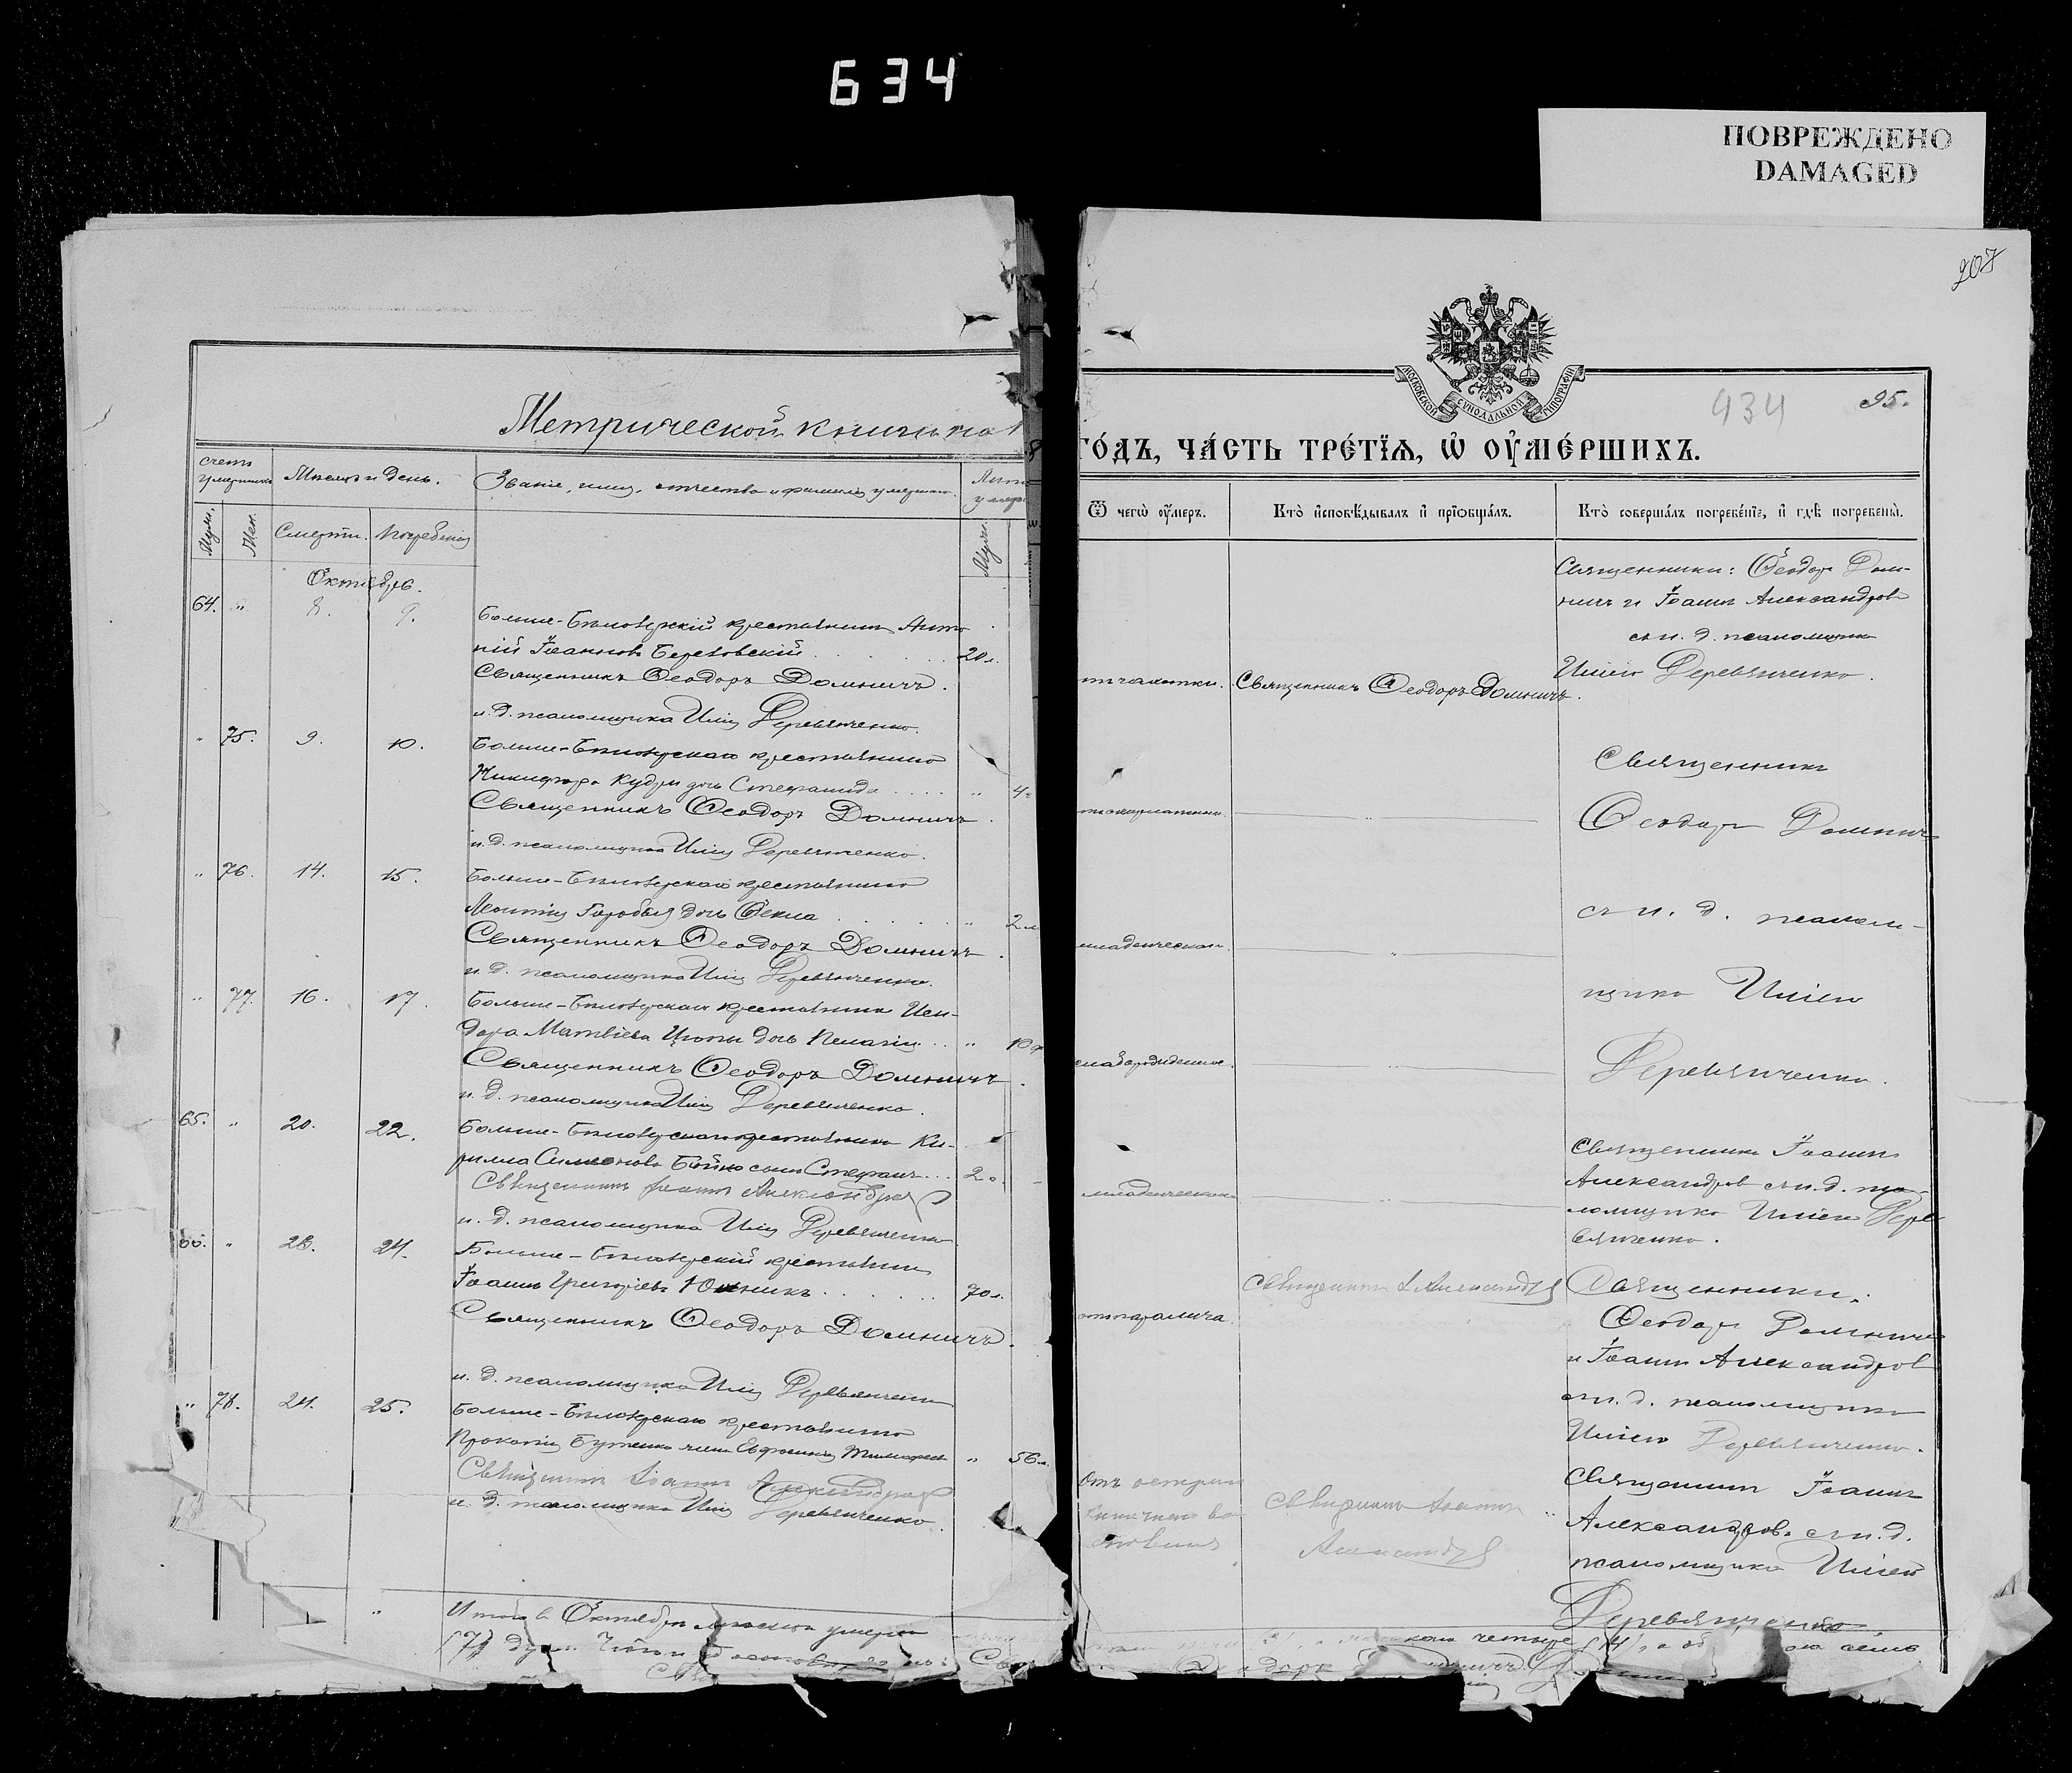 634
ПОВРЕЖДЕНО
DAMAGED
207
Метрической книги на 1
МОСКОВСКОЙ СѴНОДАЛЬНОЙ ТИПОГРАФІИ
434
95.
го́дъ, ча́сть тре́тїѧ, ѡ҆ оу҆ме́ршихъ.
счетъ умершихъ
Мѣсяцъ и день.
Званіе, имя, отчество и фамилія умершаго.
Муж.
Жен.
Смерти.
Погребенія
Муж.
Ѿ чегѡ̀ оу҆́меръ.
Кто̀ и҆сповѣ́дывалъ и҆ прїѡбща́лъ.
Кто̀ соверша́лъ погребе́нїе, и҆ гдѣ̀ погребены̀.
Октябрь.
64. " 8. 9.
Больше-Бѣлозерскій крестьянинъ Анто
ній Іоанновъ Березовскій 20 л.
Священникъ Ѳеодоръ Домничъ.
и. д. псаломщика Илія Деревянченко.
отъ чахотки.
Священникъ Ѳеодоръ Домничъ.
Священники: Ѳеодоръ Дом-
ничъ и Іоаннъ Александровъ
съ и. д. псаломщика
Иліею Деревянченко.
" 75. 9. 10.
Больше-Бѣлозерскаго крестьянина
Никифора Кудри дочь Стефанида " 4
Священникъ Ѳеодоръ Домничъ.
и. д. псаломщика Илія Деревянченко.
"
Священникъ
Ѳеодоръ Домничъ
съ и. д. псалом-
щика Иліею
Деревянченко.
" 76. 14. 15.
Больше-Бѣлозерскаго крестьянина
Леонтія Горобця дочь Ѳекла " 2
Священникъ Ѳеодоръ Домничъ.
и. д. псаломщика Илія Деревянченко.
младенческой.
"
" 77. 16. 17.
Больше-Бѣлозерскаго крестьянина Иси-
дора Матвіева дочь Пелагія " 10
Священникъ Ѳеодоръ Домничъ.
и. д. псаломщика Илія Деревянченко.
"
65. " 20. 22.
Больше-Бѣлозерскаго крестьянина Ки-
рилла Симеонова Бойко сынъ Стефанъ 2
Священникъ Іоаннъ Александровъ
и. д. псаломщика Илія Деревянченко
младенческой
"
Священникъ Іоаннъ
Александровъ съ и. д. пса-
ломщика Иліею Дере
вянченко.
66. " 23. 24.
Больше-Бѣлозерскій крестьянинъ
Іоаннъ Григоріевъ Юхникъ 70 л.
Священникъ Ѳеодоръ Домничъ.
и. д. псаломщика Илія Деревянченко
отъ паралича.
Священникъ І. Александровъ
Священники:
Ѳеодоръ Домничъ
и Іоаннъ Александровъ
съ и. д. псаломщика
Иліею Деревянченко.
" 78. 24. 25.
Больше-Бѣлозерскаго крестьянина
Прокопія Бутенко жена Евфросинія " 56 л.
Священникъ Іоаннъ Александровъ
и. д. псаломщика Илія Деревянченко.
Отъ
Священникъ Іоаннъ
Александровъ
Священникъ Іоаннъ
Александровъ съ и. д.
псаломщика Иліею
Деревянченко
Итого въ Октябрѣ мѣсяцѣ умерло
четыре семь